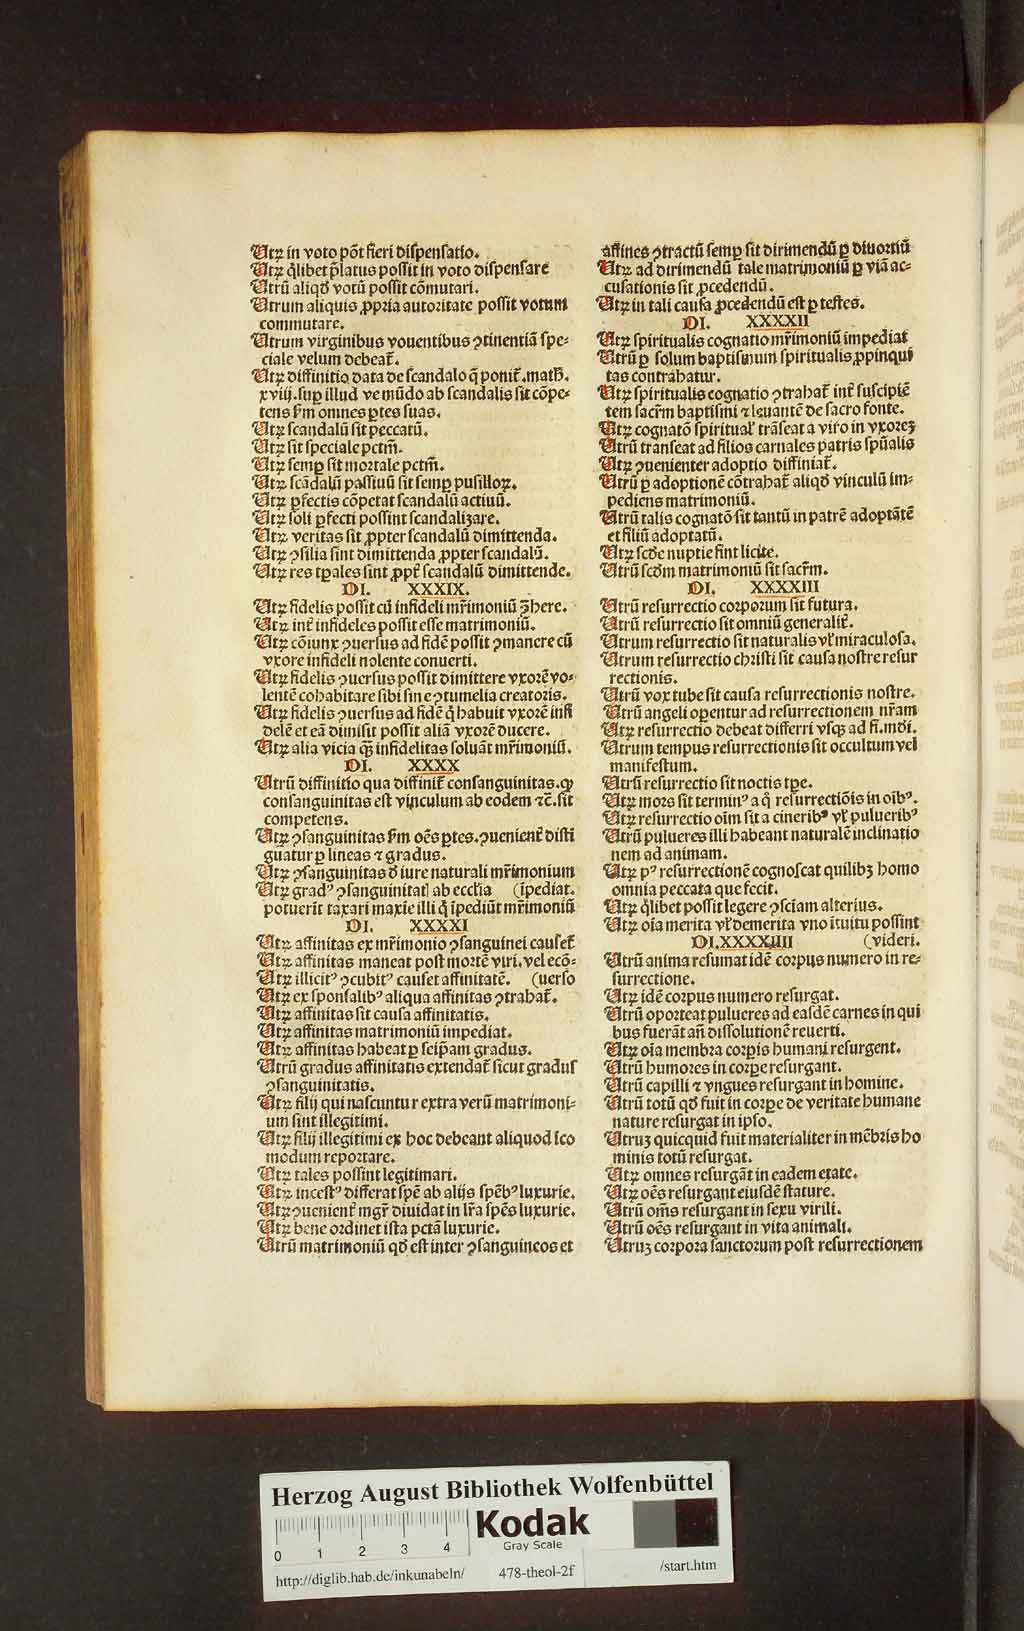 Utꝝ in voto põt fieri dispensatio.
Utꝝ q̃libet p̃latus possit in voto dispensare
Utrũ aliqđ votũ possit cõmutari.
Utrum aliquis ꝓpria autoritate possit votum
commutare.
Utrum virginibus vouentibus ꝯtinentiã spe⸗
ciale velum debeat̃.
Utꝝ diffinitio data de scandalo q̃ ponit̃.math̃.
xviij.sup̱ illud ve mũdo ab scandalis sit cõpe⸗
tens s̃m omnes ꝑtes suas.
Utꝝ scandalũ sit peccatũ.
Utꝝ sit speciale pctm̃.
Utꝝ semꝑ sit mortale pctm̃.
Utꝝ scãdalũ passiuũ sit semꝑ pusilloꝝ.
Utꝝ ꝑfectis cõpetat scandalũ actiuũ.
Utꝝ soli ꝑfecti possint scandalizare.
Utꝝ veritas sit ꝓpter scandalũ dimittenda.
Utꝝ ꝯsilia sint dimittenda ꝓpter scandalũ.
Utꝝ res tꝑales sint ꝓpt̃ scandalũ dimittende.
DI. XXXIX.
Utꝝ fidelis possit cũ infideli mr̃imoniũ ꝯ̃here.
Utꝝ int̃ infideles possit esse matrimoniũ.
Utꝝ cõiunx ꝯuersus ad fidẽ possit ꝯmanere cũ
vxore infideli nolente conuerti.
Utꝝ fidelis ꝯuersus possit dimittere vxorẽ vo⸗
lentẽ cohabitare sibi sine ꝯtumelia creatoris.
Utꝝ fidelis ꝯuersus ad fidẽ q̃ habuit vxorẽ infi
delẽ et eã dimisit possit aliã vxorẽ ducere.
Utꝝ alia vicia q̃ȝ infidelitas soluãt mr̃imoniũ.
DI. XXXX
Utrũ diffinitio qua diffinit̃ consanguinitas.ꝙ
consanguinitas est vinculum ab eodem ⁊c̃.sit
competens.
Utꝝ ꝯsanguinitas s̃m oẽs ꝑtes.ꝯuenient̃ disti
guatur ꝑ lineas ⁊ gradus.
Utꝝ ꝯsanguinitas đ iure naturali mr̃imonium
Utꝝ gradꝰ ꝯsanguinitatĩ ab ecctia (ĩpediat.
potuerĩt taxari maxie illi q̃ ĩpediũt mr̃imoniũ
DI. XXXXI
Utꝝ affinitas ex mr̃imonio ꝯsanguinei causet̃
Utꝝ affinitas maneat post mortẽ viri.vel ecõ⸗
Utꝝ illicitꝰ ꝯcubitꝰ causet affinitatẽ. (uerso
Utꝝ ex sponsalibꝰ aliqua affinitas ꝯtrahat̃.
Utꝝ affinitas sit causa affinitatis.
Utꝝ affinitas matrimoniũ impediat.
Utꝝ affinitas habeat ꝑ seip̃am gradus.
Utrũ gradus affinitatis extendat̃ sicut gradus
ꝯsanguinitatis.
Utꝝ filij qui nascuntur extra verũ matrimoni⸗
um sint illegitimi.
Utꝝ filij illegitimi ex hoc debeant aliquod ico
modum reportare.
Utꝝ tales possint legitimari.
Utꝝ incestꝰ differat spẽ ab alijs spẽbꝰ luxurie.
Utꝝ ꝯuenient̃ mgr̃ diuidat in lr̃a spẽs luxurie.
Utꝝ bene ordinet ista pctã luxurie.
Utrũ matrimoniũ qđ est inter ꝯsanguineos et
affines ꝯtractũ semꝑ sit dirimendũ ꝑ diuortiũ
Utꝝ ad dirimendũ tale matrimoniũ ꝑ viã ac⸗
cusationis sit ꝓcedendũ.
Utꝝ in tali causa ꝓcedendũ est ꝑ testes.
DI. XXXXII
Utꝝ spiritualis cognatio mr̃imoniũ impediat
Utrũ ꝑ solum baptismum spiritualis ꝓpinqui
tas contrahatur.
Utꝝ spiritualis cognatio ꝯtrahat̃ int̃ suscipiẽ
tem sacr̃m baptismi ⁊ leuantẽ de sacro fonte.
Utꝝ cognatõ spiritual̃ trãseat a viro in vxoreȝ
Utrũ transeat ad filios carnales patris spũalis
Utꝝ ꝯuenienter adoptio diffiniat̃.
Utrũ ꝑ adoptionẽ cõtrahat̃ aliqđ vinculũ im⸗
pediens matrimoniũ.
Utrũ talis cognatõ sit tantũ in patrẽ adoptãtẽ
et filiũ adoptatũ.
Utꝝ scđe nuptie sint licite.
Utrũ scđm matrimoniũ sit sacr̃m.
DI. XXXXIII
Utrũ resurrectio corporum sit futura.
Utrũ resurrectio sit omniũ generalit̃.
Utrum resurrectio sit naturalis vl̃ miraculosa.
Utrum resurrectio christi sit causa nostre resur
rectionis.
Utrũ vox tube sit causa resurrectionis nostre.
Utrũ angeli oꝑentur ad resurrectionem nr̃am
Utꝝ resurrectio debeat differri vsqȝ ad fi.mđi.
Utrum tempus resurrectionis sit occultum vel
manifestum.
Utrũ resurrectio sit noctis tꝑe.
Utꝝ mors sit terminꝰ a q̃ resurrectiõis in oĩbꝰ.
Utꝝ resurrectio oĩm sit a cineribꝰ vl̃ pulueribꝰ
Utrũ pulueres illi habeant naturalẽ inclinatio
nem ad animam.
Utꝝ pꝰ resurrectionẽ cognoscat quilibȝ homo
omnia peccata que fecit.
Utꝝ q̃libet possit legere ꝯsciam alterius.
Utꝝ oĩa merita vl̃ demerita vno ĩtuitu possint
DI.XXXXIIII (videri.
Utrũ anima resumat idẽ corpus numero in re⸗
surrectione.
Utꝝ idẽ corpus numero resurgat.
Utrũ oporteat pulueres ad easdẽ carnes in qui
bus fuerãt añ dissolutionẽ reuerti.
Utꝝ oĩa membra corꝑis humani resurgent.
Utrũ humores in corꝑe resurgant.
Utrũ capilli ⁊ vngues resurgant in homine.
Utrũ totũ qđ fuit in corꝑe de veritate humane
nature resurgat in ipso.
Utruȝ quicquid fuit materialiter in mẽbris ho
minis totũ resurgat.
Utꝝ omnes resurgãt in eadem etate.
Utꝝ oẽs resurgant eiusdẽ stature.
Utrũ om̃s resurgant in sexu virili.
Utrũ oẽs resurgant in vita animali.
Utruȝ corpora sanctorum post resurrectionem
Herzog August Bibliothek Wolfenbüttel
Kodak
Gray Scale
0 1 2 3 4
http://diglib.hab.de/inkunabeln/ 478-theol-2f /start.htm